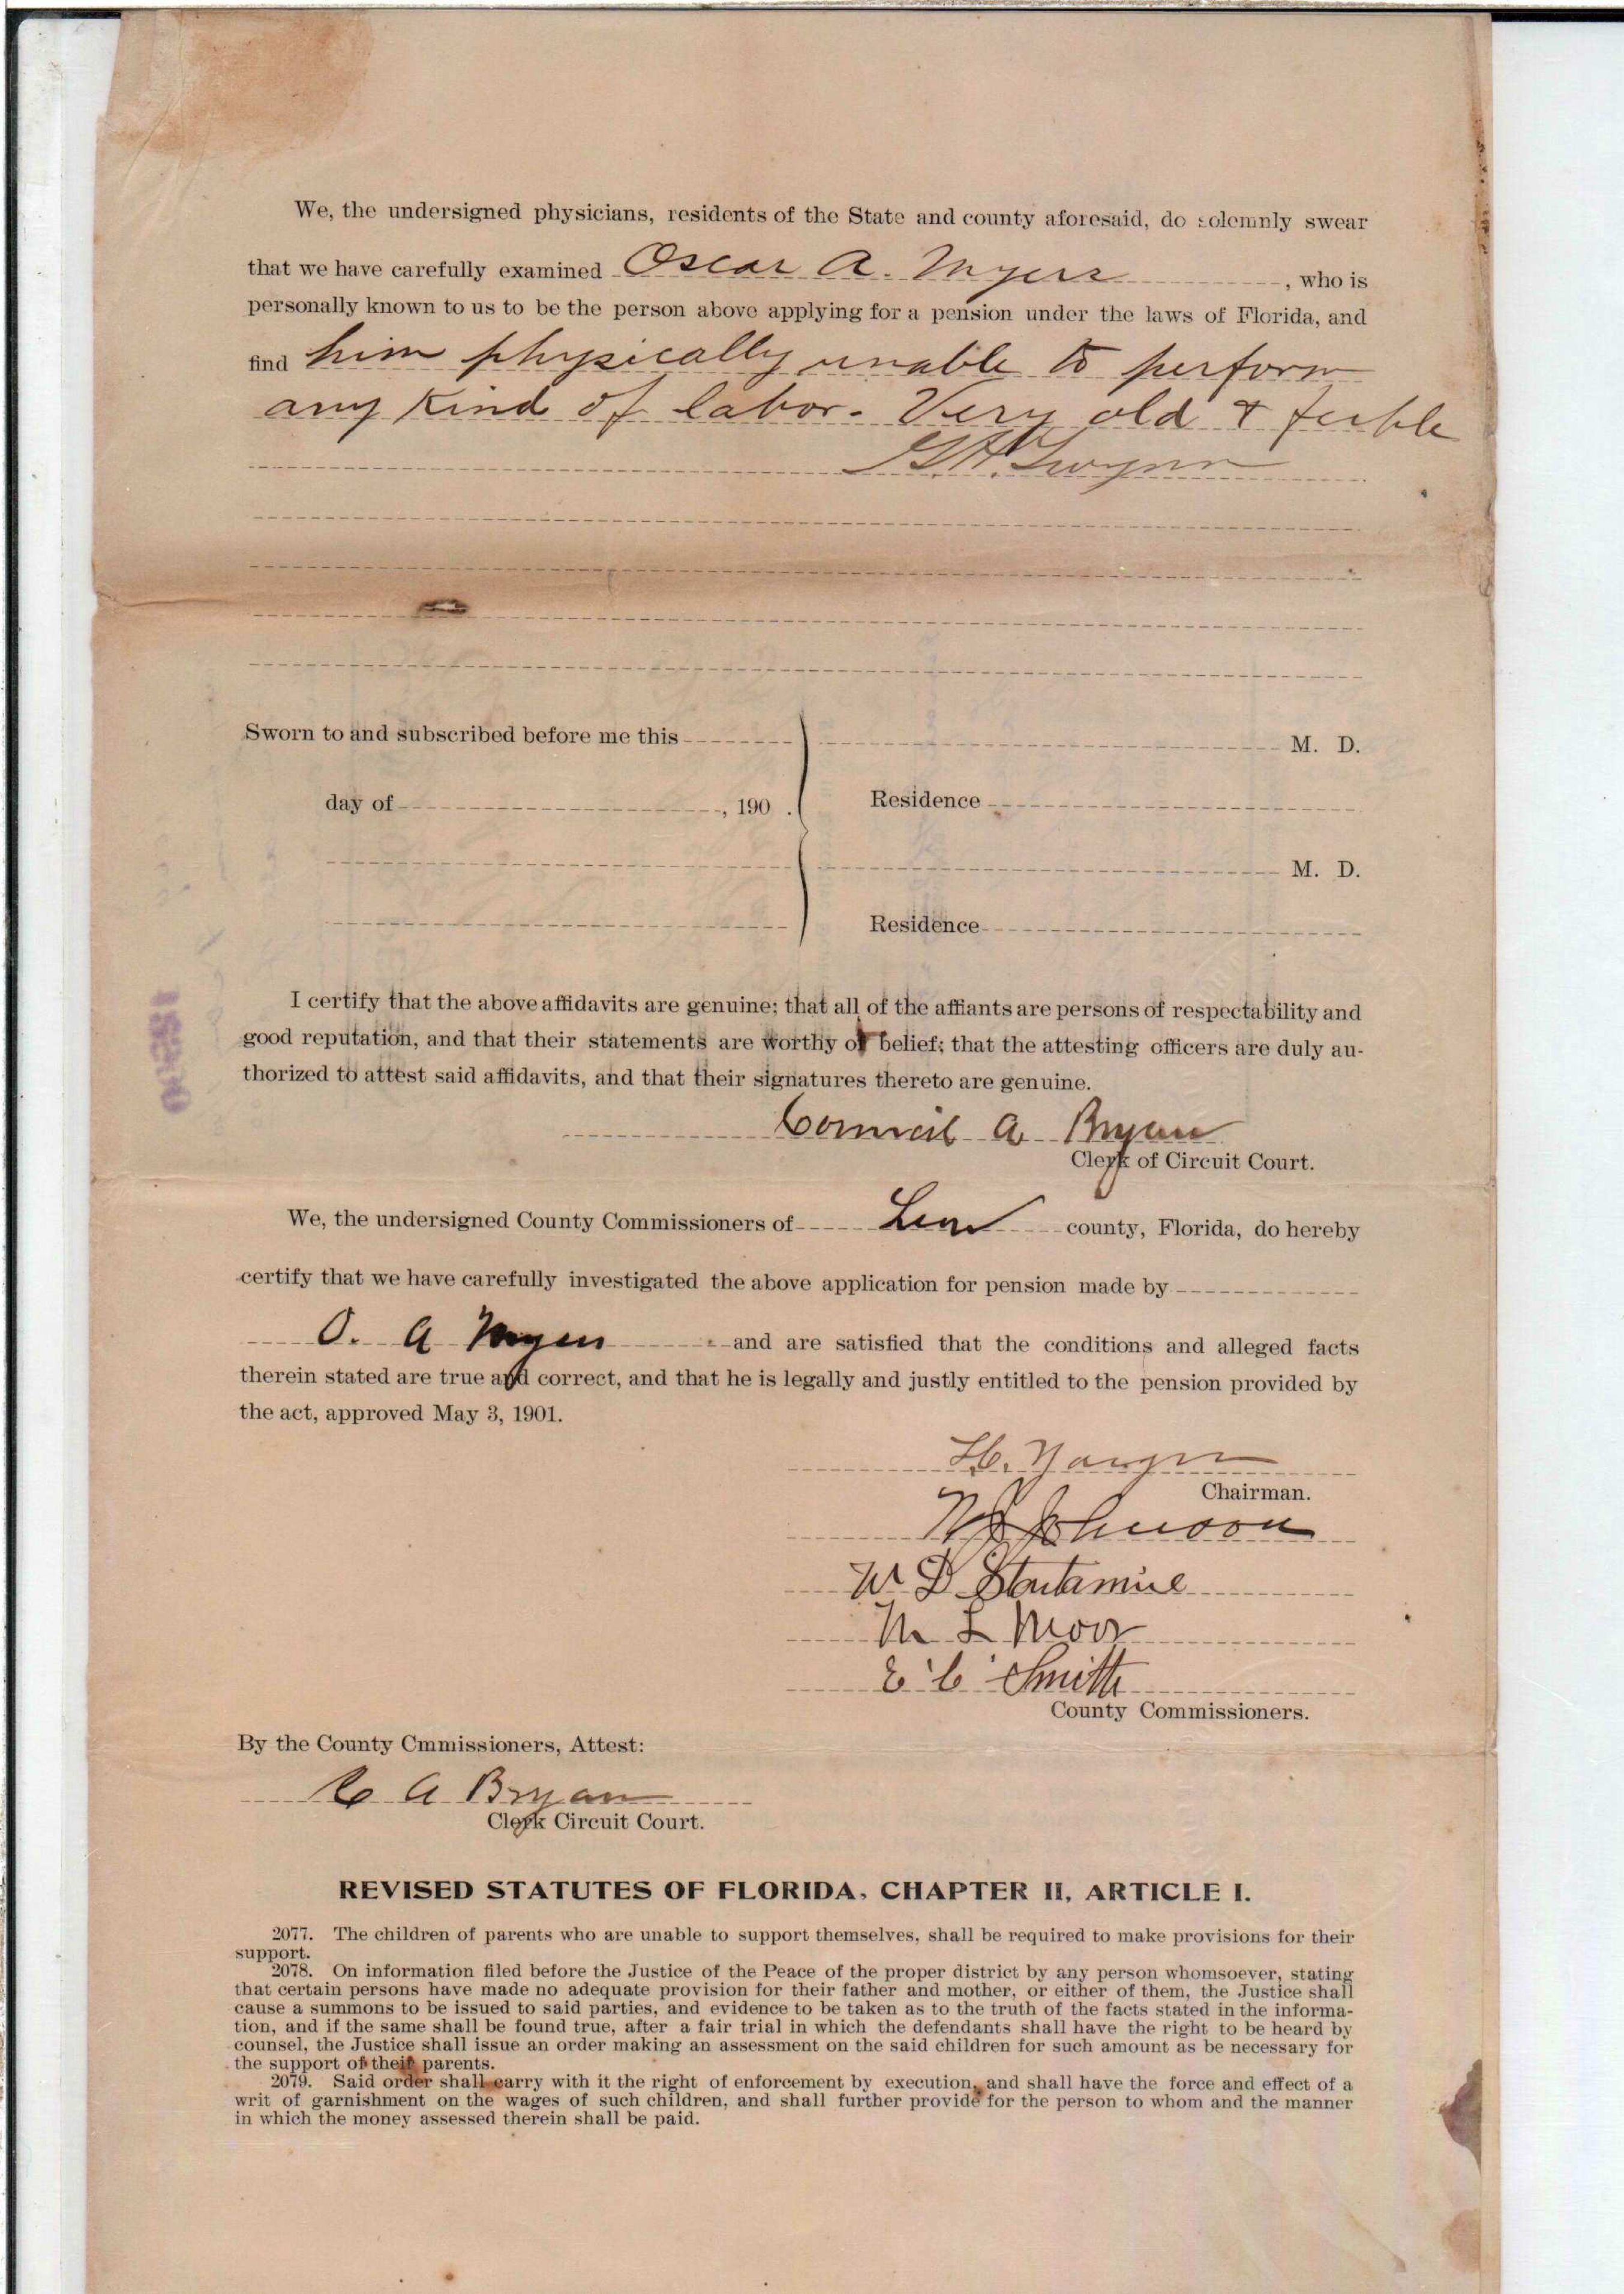 We, the undersigned physicians, residents of the State and county aforesaid, do solemnly swear
that we have carefully examined Oscar A. Myers, who is
personally known to us to be the person above applying for a pension under the laws of Florida, and
find him physically unable to perform
any kind of labor. Very old & feeble
Gwynn
Sworn to and subscribed before me this
M. D.
day of , 190 .
Residence
M. D.
Residence
I certify that the above affidavits are genuine; that all of the affiants are persons of respectability and
good reputation, and that their statements are worthy of belief; that the attesting officers are duly au-
thorized to attest said affidavits, and that their signatures thereto are genuine.
Council A Bryan
Clerk of Circuit Court.
We, the undersigned County Commissioners of Leon county, Florida, do hereby
certify that we have carefully investigated the above application for pension made by
O. A Myers and are satisfied that the conditions and alleged facts
therein stated are true and correct, and that he is legally and justly entitled to the pension provided by
the act, approved May 3, 1901.
Chairman.
Johnson
W D Stoutamire
M L Moor
E C Smith
County Commissioners.
By the County Cmmissioners, Attest:
C A Bryan
Clerk Circuit Court.
REVISED STATUTES OF FLORIDA, CHAPTER II, ARTICLE I.
2077. The children of parents who are unable to support themselves, shall be required to make provisions for their
support.
2078. On information filed before the Justice of the Peace of the proper district by any person whomsoever, stating
that certain persons have made no adequate provision for their father and mother, or either of them, the Justice shall
cause a summons to be issued to said parties, and evidence to be taken as to the truth of the facts stated in the informa-
tion, and if the same shall be found true, after a fair trial in which the defendants shall have the right to be heard by
counsel, the Justice shall issue an order making an assessment on the said children for such amount as be necessary for
the support of their parents.
2079. Said order shall carry with it the right of enforcement by execution, and shall have the force and effect of a
writ of garnishment on the wages of such children, and shall further provide for the person to whom and the manner
in which the money assessed therein shall be paid.